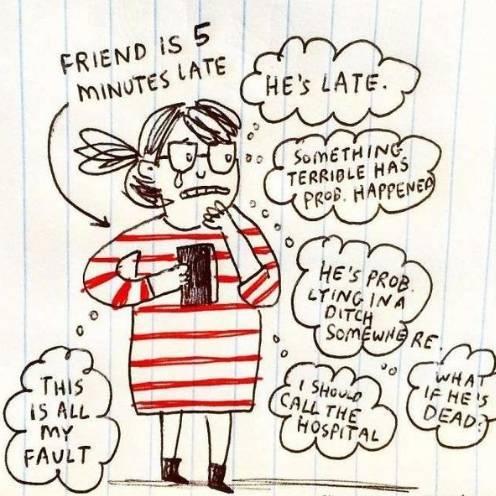 FRIEND IS 5
MINUTES LATE
HE'S LATE.
SOMETHING
TERRIBLE HAS
PROB. HAPPENED
HE'S PROB.
LYING IN A
DITCH
SOMEWHERE.
I SHOULD
CALL THE
HOSPITAL
WHAT
IF HE'S
DEAD?
THIS
IS ALL
MY
FAULT